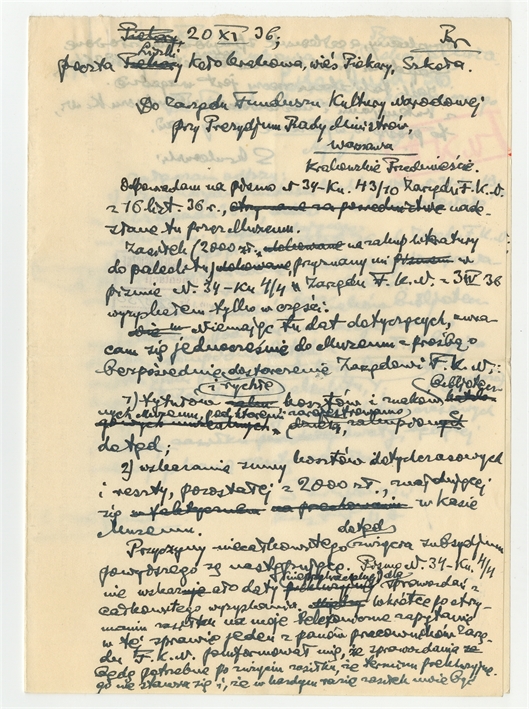 Piekary 20 XI 36, Br.
Liszki
poczta Piekary koło Krakowa, wieś Piekary, Szkoła.
Do Zarządu Funduszu Kultury Narodowej
przy Prezydjum Rady Ministrów,
Warszawa
Krakowskie Przedmieście.
Odpowiadam na pismo N 34-Ku. 43/10 Zarządu F.K.N.
z 16 list. 36 r., otrzymane za pośrednictwem nade-
słane tu przez Muzeum.
Zasiłek (2000 zł. na zakup literatury
do paleolitu) przyznany mi pismem w
piśmie N. 34-Ku 4/4 Zarządu F.K.N. z 3 IV 36
wyzyskałem tylko w części.
Nie mając tu dat dotyczących, zwra-
cam się jednocześnie do Muzeum z prośbą o
bezpośrednie dostarczenie Zarządowi F.K.N.:
i rychłe
1) tytułów kosztów i znaków bibliotecz-
nych Muzeum, pod któremi zarejestrowano
dzieła, zakupionych
dotąd;
2) wskazanie sumy kosztów dotychczasowych
i reszty, pozostałej z 2000 zł., znajdującej
się w kasie
Muzeum. dotąd
Przyczyny niecałkowitego zużycia subsydjum
powyższego są następujące. Pismo N. 34-Ku. 4/4
nie wskazuje ato daty dla sprawozdań z
całkowitego wyzyskania. Wkrótce po otrzy-
maniu zasiłku na moje telefoniczne zapytanie
w tej sprawie jeden z panów pracowników Zarzą-
du F.K.N. poinformował mię, że sprawozdania
będą potrzebne po zużyciu zasiłku, że terminu prekluzyjne-
go nie stawia się i, że w każdym razie zasiłek może być